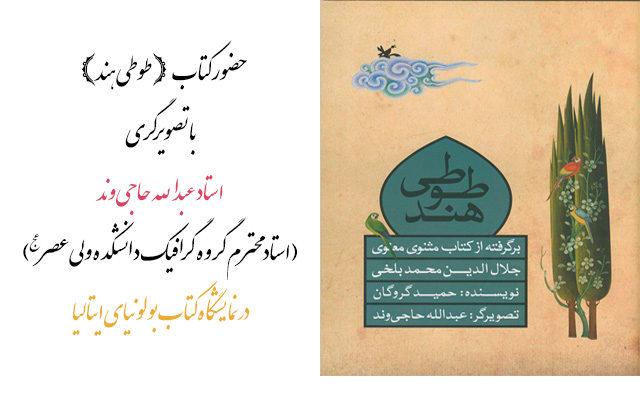 حضور کتاب ﴿طوطی هند﴾
با تصویرگری
استاد عبدالله حاجی‌وند
(استاد محترم گروه گرافیک دانشکده ولی عصر عج)
در نمایشگاه کتاب بولونیای ایتالیا
طوطی
هند
برگرفته از کتاب مثنوی معنوی
جلال الدین محمد بلخی
نویسنده: حمید گروگان
تصویرگر: عبدالله حاجی‌وند